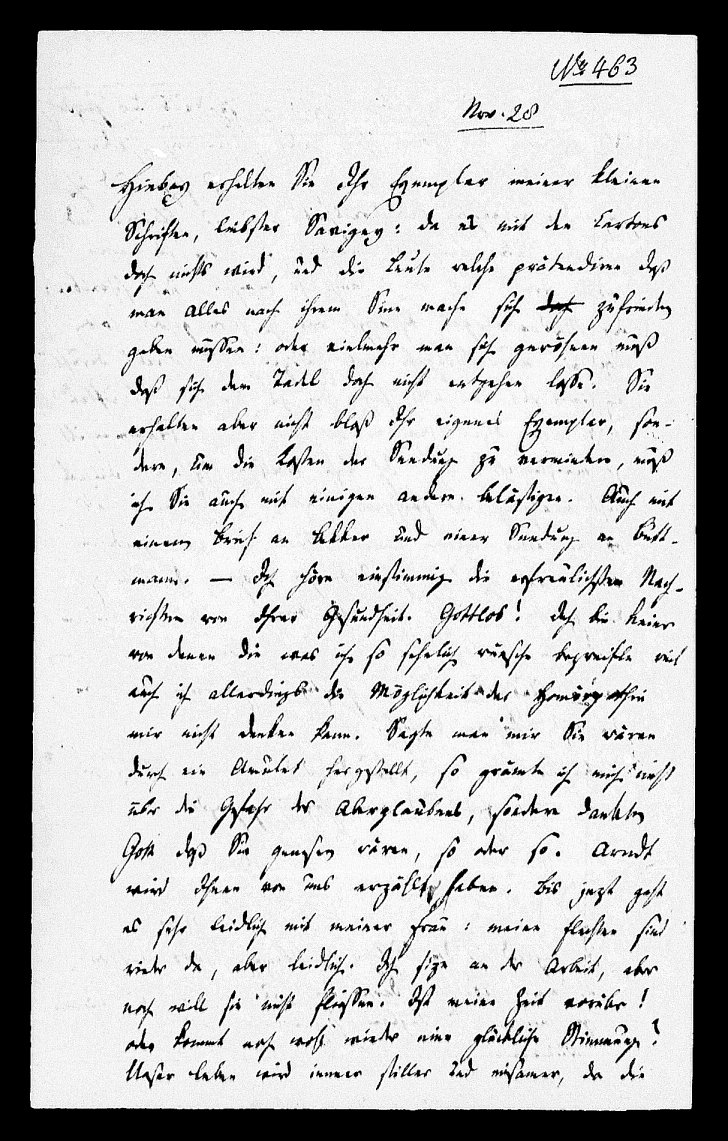 No 463
Nov. 28
Hiebey erhalten Sie Ihr Exemplar meiner kleinen
Schriften, liebster Savigny: da es mit den Cartons
doch nichts wird, und die Leute welche prätendiren daß
man alles nach ihrem Sinn mache sich doch zufrieden
geben müssen: oder vielmehr man sich gewöhnen muß
daß sich dem Tadel doch nicht entgehen lasse. Sie
erhalten aber nicht bloß Ihr eigenes Exemplar, son-
dern, um die Kosten der Sendung zu vermindern, muß
ich Sie auch mit einigen andern belästigen. Auch mit
einem Brief an Bekker und einer Sendung an Butt-
mann. — Ich höre einstimmig die erfreulichsten Nach-
richten von Ihrer Gesundheit. Gottlob! Ich bin keiner
von denen die was ich so sehnlich wünsche bezweifle weil
auch ich allerdings die Möglichkeit der Homöopathie
mir nicht denken kann. Sagte man mir Sie wären
durch ein Amulet hergestellt, so grämte ich mich nicht
über die Gefahr des Aberglaubens, sondern dankte
Gott daß Sie genesen wären, so oder so. Arndt
wird Ihnen von uns erzählt haben. Bis jezt geht
es sehr leidlich mit meiner Frau: meine Flechten sind
wieder da, aber leidlich. Ich size an der Arbeit, aber
noch will sie nicht fliessen. Ist meine Zeit vorüber!
oder kommt noch wohl wieder eine glückliche Stimmung?
Unser Leben wird immer stiller und einsamer, da die